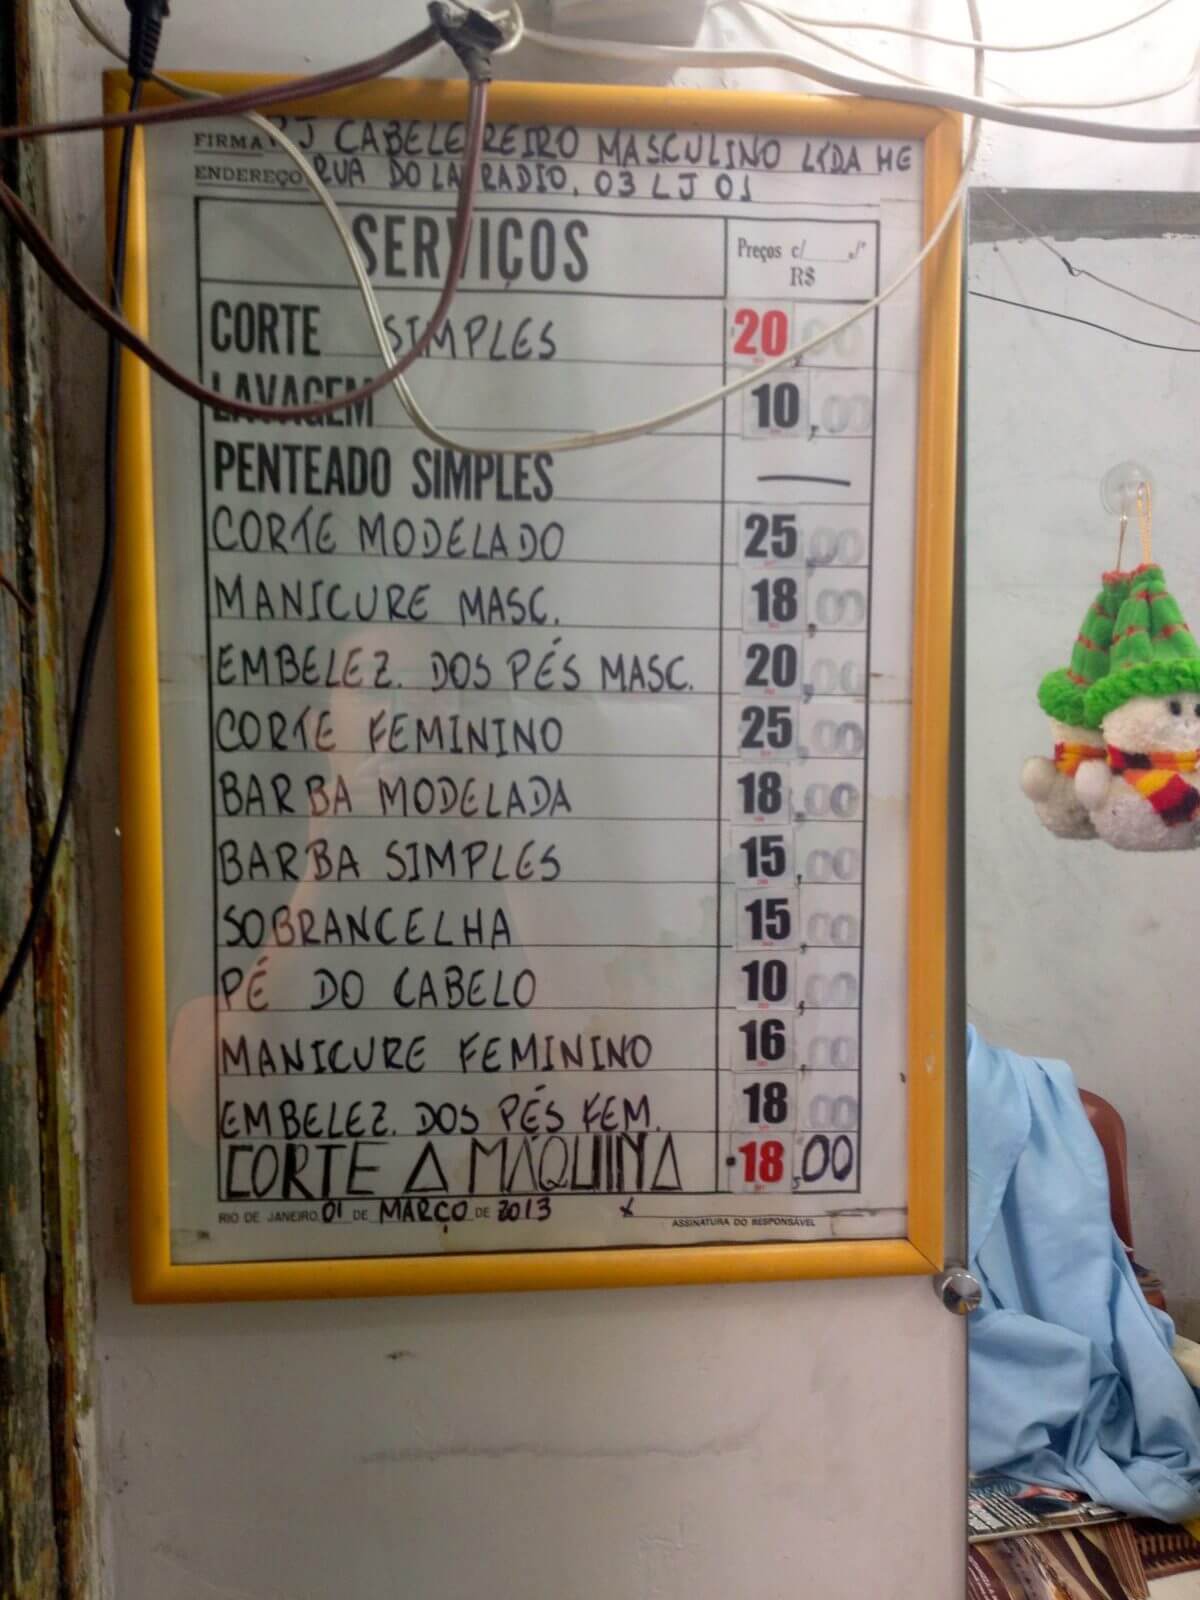 FIRMA J CABELEREIRO MASCULINO LTDA ME
ENDEREÇO RUA DO LAVRADIO, 03 LJ 01
SERVIÇOS Preços c/ R$
CORTE SIMPLES 20,00
LAVAGEM 10,00
PENTEADO SIMPLES —
CORTE MODELADO 25,00
MANICURE MASC. 18,00
EMBELEZ. DOS PÉS MASC. 20,00
CORTE FEMININO 25,00
BARBA MODELADA 18,00
BARBA SIMPLES 15,00
SOBRANCELHA 15,00
PÉ DO CABELO 10,00
MANICURE FEMININO 16,00
EMBELEZ. DOS PÉS FEM. 18,00
CORTE A MÁQUINA 18,00
RIO DE JANEIRO 01 DE MARÇO DE 2013 x ASSINATURA DO RESPONSÁVEL